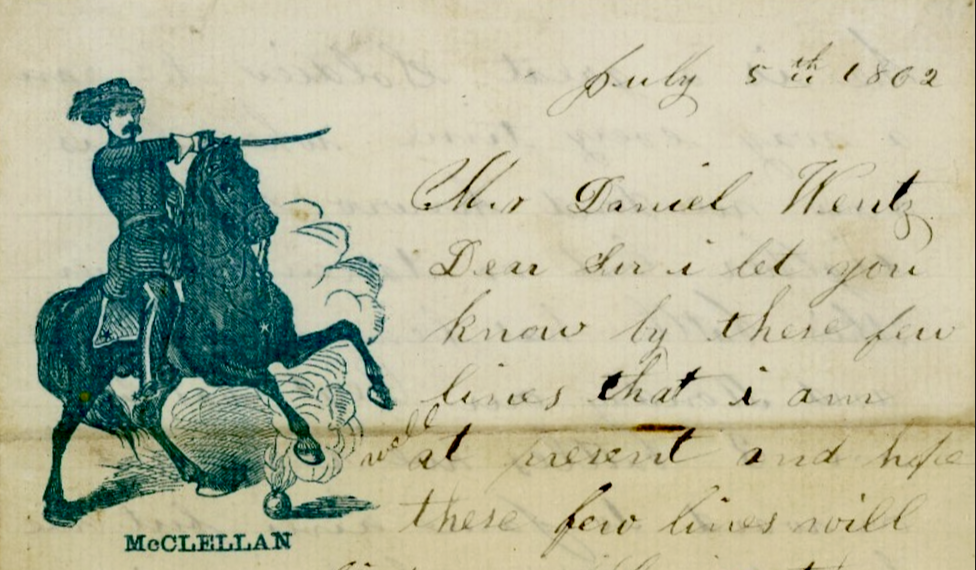 July 5th 1862
Mr Daniel Wentz
Dear Sir i let you
know by these few
lines that i am
well at present and hope
these few lines will
McCLELLAN